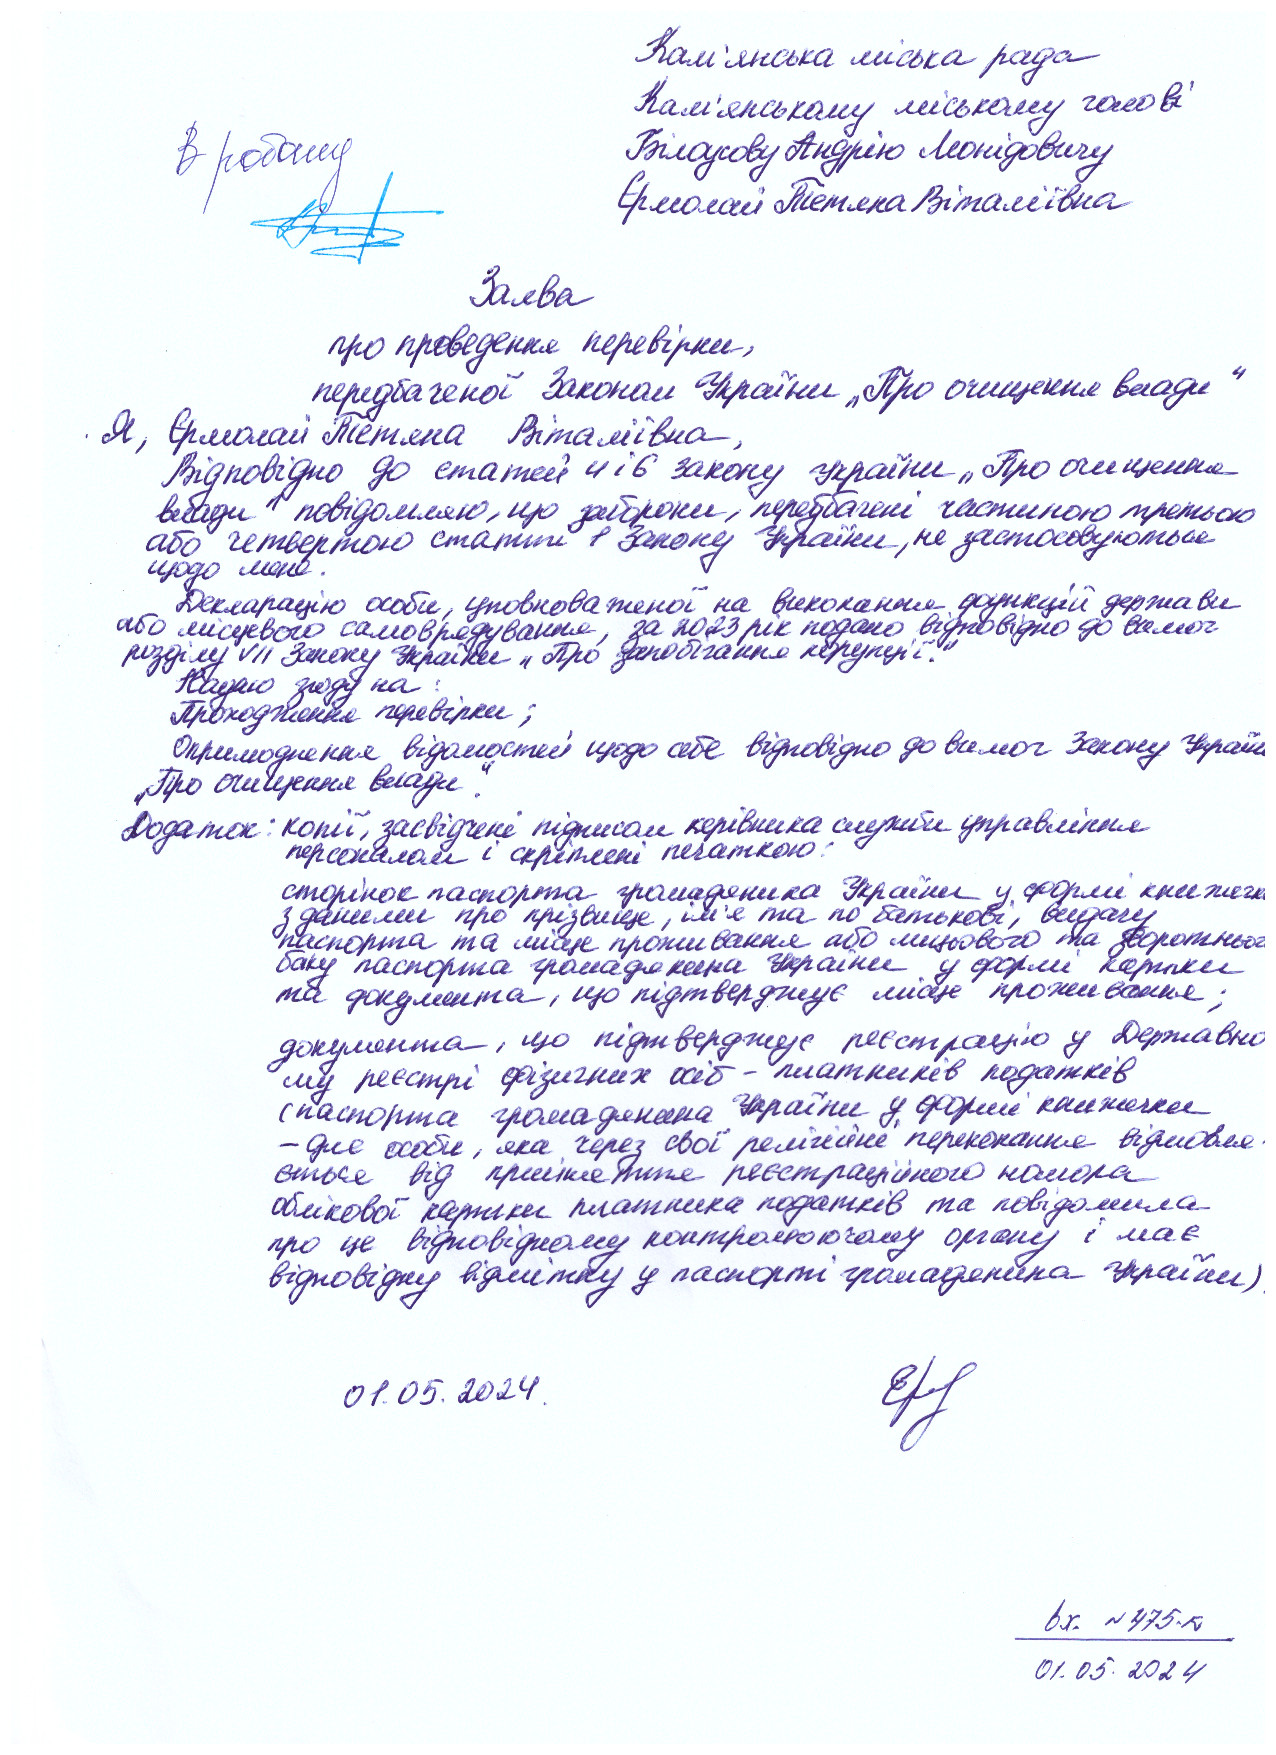 Кам'янська міська рада
Кам'янському міському голові
Білоусову Андрію Леонідовичу
Єрмолай Тетяна Віталіївна
В роботу
Заява
про проведення перевірки,
передбаченої Законом України „Про очищення влади"
Я, Єрмолай Тетяна Віталіївна,
Відповідно до статей 4 і 6 Закону України „Про очищення
влади" повідомляю, що заборони, передбачені частиною третьою
або четвертою статті 1 Закону України, не застосовуються
щодо мене.
Декларацію особи, уповноваженої на виконання функцій держави
або місцевого самоврядування, за 2023 рік подано відповідно до вимог
розділу VII Закону України „Про запобігання корупції".
Надаю згоду на:
Проходження перевірки;
Оприлюднення відомостей щодо себе відповідно до вимог Закону України
„Про очищення влади".
Додаток: копії, засвідчені підписом керівника служби управління
персоналом і скріплені печаткою:
сторінок паспорта громадянина України у формі книжечки
з даними про прізвище, ім'я та по батькові, видачу
паспорта та місце проживання або лицьового та зворотнього
боку паспорта громадянина України у формі картки
та документа, що підтверджує місце проживання;
документа, що підтверджує реєстрацію у Державно
му реєстрі фізичних осіб – платників податків
(паспорта громадянина України у формі книжечки
– для особи, яка через свої релігійні переконання відмовля-
ється від прийняття реєстраційного номера
облікової картки платника податків та повідомила
про це відповідному контролюючому органу і має
відповідну відмітку у паспорті громадянина України).
01.05.2024.
вх. №475-к
01.05.2024